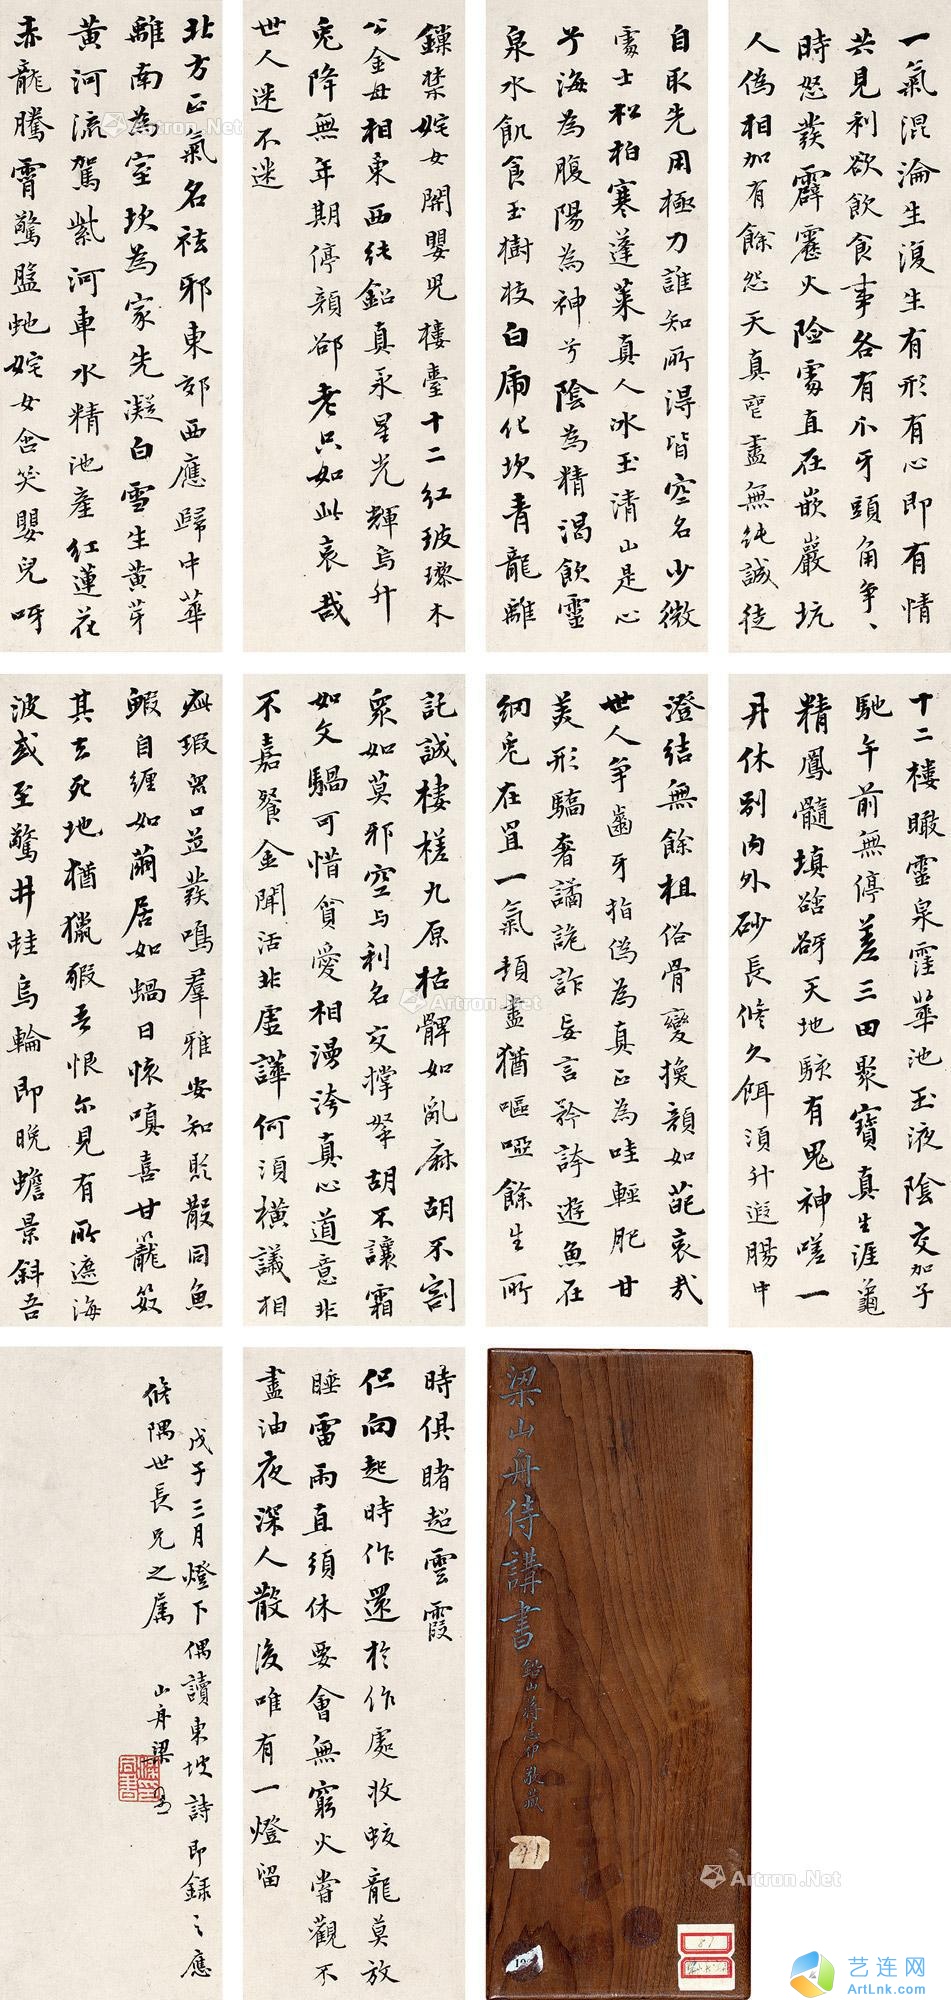 一氣混淪生復生有形有心即有情
共見利欲飲食事各有爪牙頭角爭、
時怒發霹靂火險處直在嵌巖坑
人偽相加有餘怨天真喪盡無純誠徒
自取先用極力誰知所得皆空名少微
處士松柏寒蓬萊真人冰玉清山是心
兮海為腹陽為神兮陰為精渴飲靈
泉水飢食玉樹枝白虎化坎青龍離
鏁禁姹女關嬰兒樓臺十二紅玻瓈木
公金母相東西純鉛真汞星光輝烏升
兔降無年期停顏卻老只如此哀哉
世人迷不迷
北方正氣名祛邪東郊西應歸中華
離南為室坎為家先凝白雪生黃芽
黃河流駕紫河車水精池產紅蓮花
赤龍騰霄驚盤虵姹女含笑嬰兒呀
十二樓瞰靈泉霪華池玉液陰交加子
馳午前無停差三田聚寶真生涯龜
精鳳髓填谽谺天地駭有鬼神嗟一
丹休別內外砂長修久餌須升遐腸中
澄結無餘柤俗骨變換顏如葩哀哉
世人爭齒牙指偽為真正為哇輕肥甘
美形驕奢譎詭詐妄言矜誇遊魚在
網兔在罝一氣頓盡猶嘔啞餘生所
託誠棲槎九原枯髀如亂麻胡不割
眾如莫邪空与利名交撐拏胡不讓霜
如文騧可惜貪愛相漫誇真心道意非
不嘉餐金聞活非虛譁何須橫議相
疵瑕眾口並發鳴羣雅安知散同魚
鰕自纏如繭居如蝸日悵嗔喜甘籠笯
其去死地猶獵豭吾恨尔見有所遮海
波或至驚井蛙烏輪即晚蟾景斜吾
梁山舟侍講書
鉛山蔣志伊敬藏
41
81
時俱睹超雲霞
但向起時作還於作處收蛟龍莫放
睡雷雨直須休要會無窮火嘗觀不
盡油夜深人散後唯有一燈留
戊子三月燈下偶讀東坡詩即錄之應
修隅世長兄之屬
山舟梁同書
Artron.Net
Artron.Net
Artron.Net
Artron.Net
Artron.Net
艺连网
ArtLnk.com